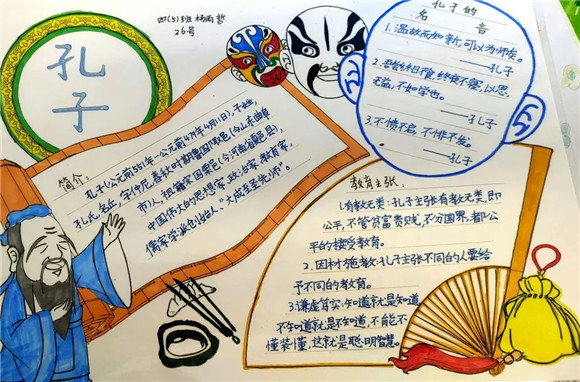 四(5)班 杨雨哲
26号
孔子
简介:
孔子(公元前551年-公元前479年4月11日),子姓,
孔氏,名丘,字仲尼,春秋时期鲁国陬邑(今山东曲阜
市)人,祖籍宋国栗邑(今河南省夏邑县),
中国伟大的思想家、政治家、教育家,
儒家学派创始人、“大成至圣先师”。
孔子的
名言
1.温故而知新,可以为师矣。
——孔子
终日 食,终夜不寝,以思,
无益,不如学也。
——孔子
3.不愤不启,不悱不发。
——孔子
教育主张:
1.有教无类:孔子主张有教无类,即
公平,不管贫富贵贱,不分国界,都公
平的接受教育。
2.因材施教:孔子主张不同的人要给
予不同的教育。
3.谦虚真实:知道就是知道,
不知道就是不知道,不能不
懂装懂,这就是聪明智慧。